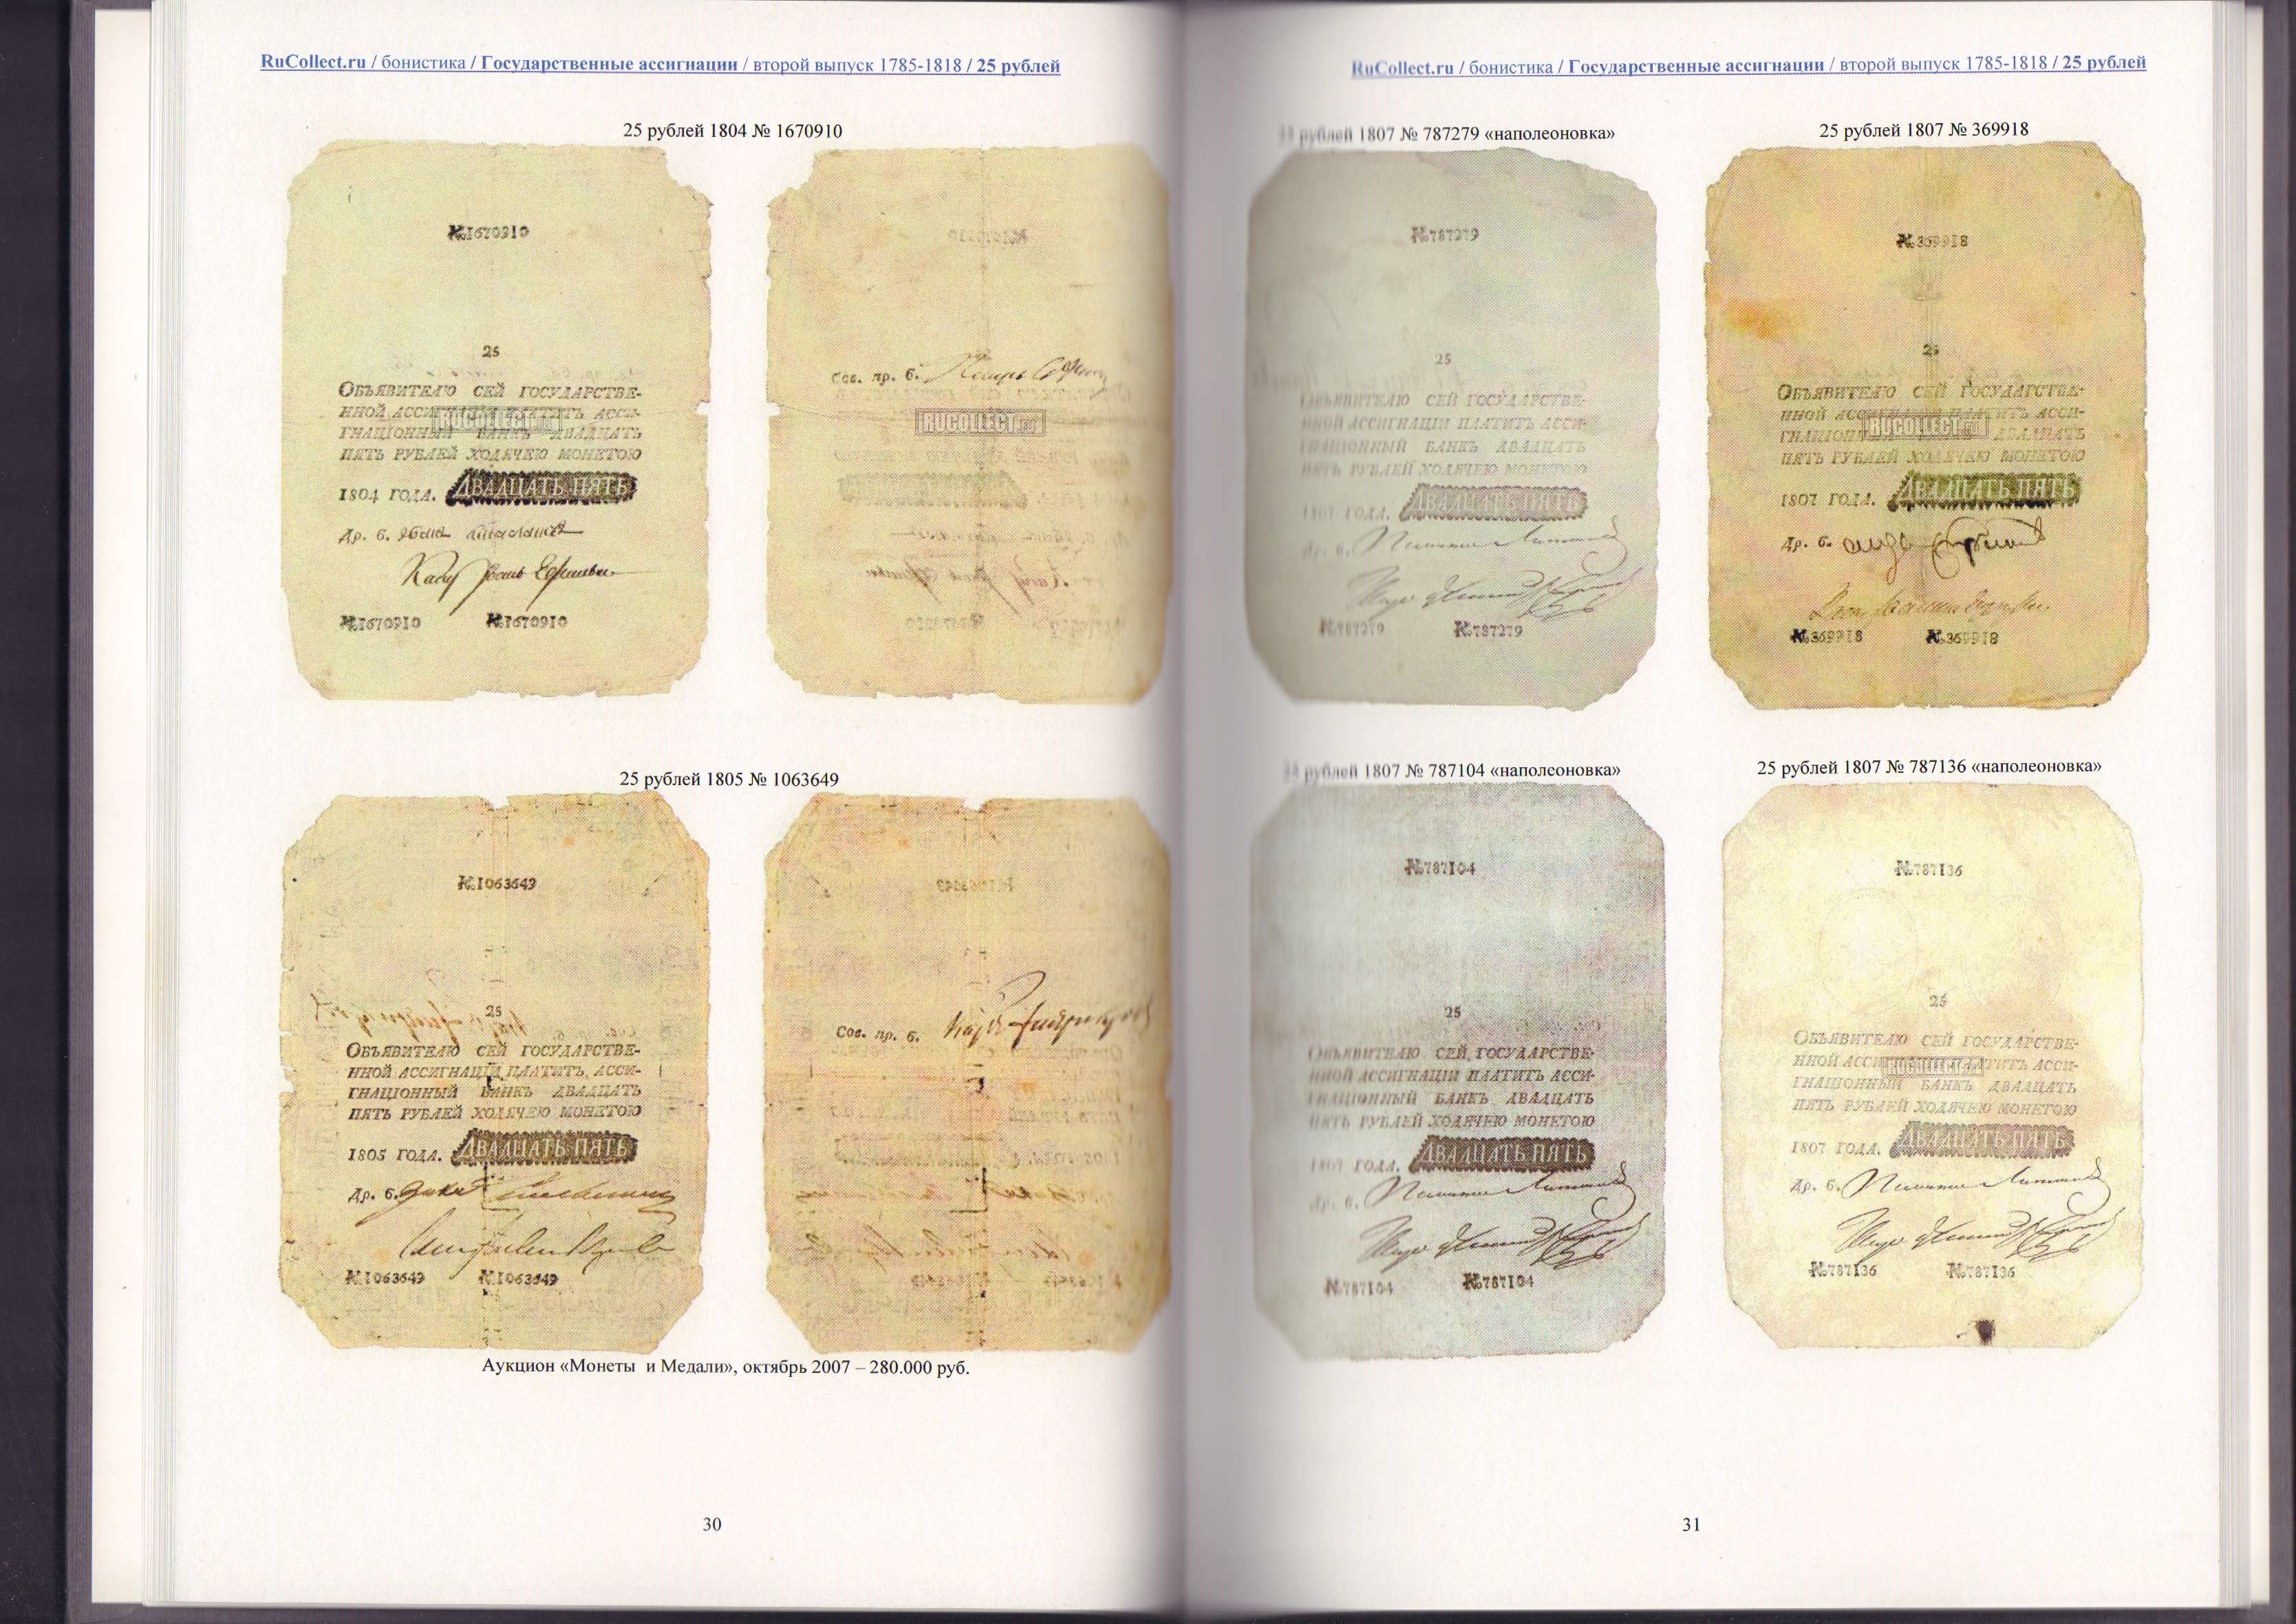 RuCollect.ru / бонистика / Государственные ассигнации / второй выпуск 1785-1818 / 25 рублей
25 рублей 1804 № 1670910
№1670910
25
ОБЪЯВИТЕЛЮ СЕЙ ГОСУДАРСТВЕ-
ННОЙ АССИ ПЛАТИТЪ АССИ-
ГНАЦІОННЫЙ БАНКЪ ДВАДЦАТЬ
ПЯТЬ РУБЛЕЙ ХОДЯЧЕЮ МОНЕТОЮ
1804 ГОДА. ДВАДЦАТЬ ПЯТЬ
Др. б.
№1670910 №1670910
Сов. пр. б.
RUCOLLECT.ru
25 рублей 1805 № 1063649
№1063649
25
ОБЪЯВИТЕЛЮ СЕЙ ГОСУДАРСТВЕ-
ННОЙ АССИГНАЦІИ ПЛАТИТЪ АССИ-
ГНАЦІОННЫЙ БАНКЪ ДВАДЦАТЬ
ПЯТЬ РУБЛЕЙ ХОДЯЧЕЮ МОНЕТОЮ
1805 ГОДА. ДВАДЦАТЬ ПЯТЬ
Др. б.
№1063649 №1063649
Сов. пр. б.
Аукцион «Монеты и Медали», октябрь 2007 – 280.000 руб.
30
RuCollect.ru / бонистика / Государственные ассигнации / второй выпуск 1785-1818 / 25 рублей
25 рублей 1807 № 787279 «наполеоновка»
№787279
25
ОБЪЯВИТЕЛЮ СЕЙ ГОСУДАРСТВЕ-
ННОЙ АССИГНАЦІИ ПЛАТИТЪ АССИ-
ГНАЦІОННЫЙ БАНКЪ ДВАДЦАТЬ
ПЯТЬ РУБЛЕЙ ХОДЯЧЕЮ МОНЕТОЮ
1807 ГОДА. ДВАДЦАТЬ ПЯТЬ
Др. б.
№787279 №787279
25 рублей 1807 № 369918
№369918
25
ОБЪЯВИТЕЛЮ СЕЙ ГОСУДАРСТВЕ-
ННОЙ ПЛАТИТЪ АССИ-
RUCOLLECT.ru
ДВАДЦАТЬ
ПЯТЬ РУБЛЕЙ ХОДЯЧЕЮ МОНЕТОЮ
1807 ГОДА. ДВАДЦАТЬ ПЯТЬ
Др. б.
№369918 №369918
25 рублей 1807 № 787104 «наполеоновка»
№787104
25
ОБЪЯВИТЕЛЮ СЕЙ ГОСУДАРСТВЕ-
ННОЙ АССИГНАЦІИ ПЛАТИТЪ АССИ-
ГНАЦІОННЫЙ БАНКЪ ДВАДЦАТЬ
ПЯТЬ РУБЛЕЙ ХОДЯЧЕЮ МОНЕТОЮ
1807 ГОДА. ДВАДЦАТЬ ПЯТЬ
Др. б.
№787104 №787104
25 рублей 1807 № 787136 «наполеоновка»
№787136
25
ОБЪЯВИТЕЛЮ СЕЙ ГОСУДАРСТВЕ-
ННОЙ ПЛАТИТЪ АССИ-
RUCOLLECT.ru
ГНАЦІОННЫЙ БАНКЪ ДВАДЦАТЬ
ПЯТЬ РУБЛЕЙ ХОДЯЧЕЮ МОНЕТОЮ
1807 ГОДА. ДВАДЦАТЬ ПЯТЬ
Др. б.
№787136 №787136
31